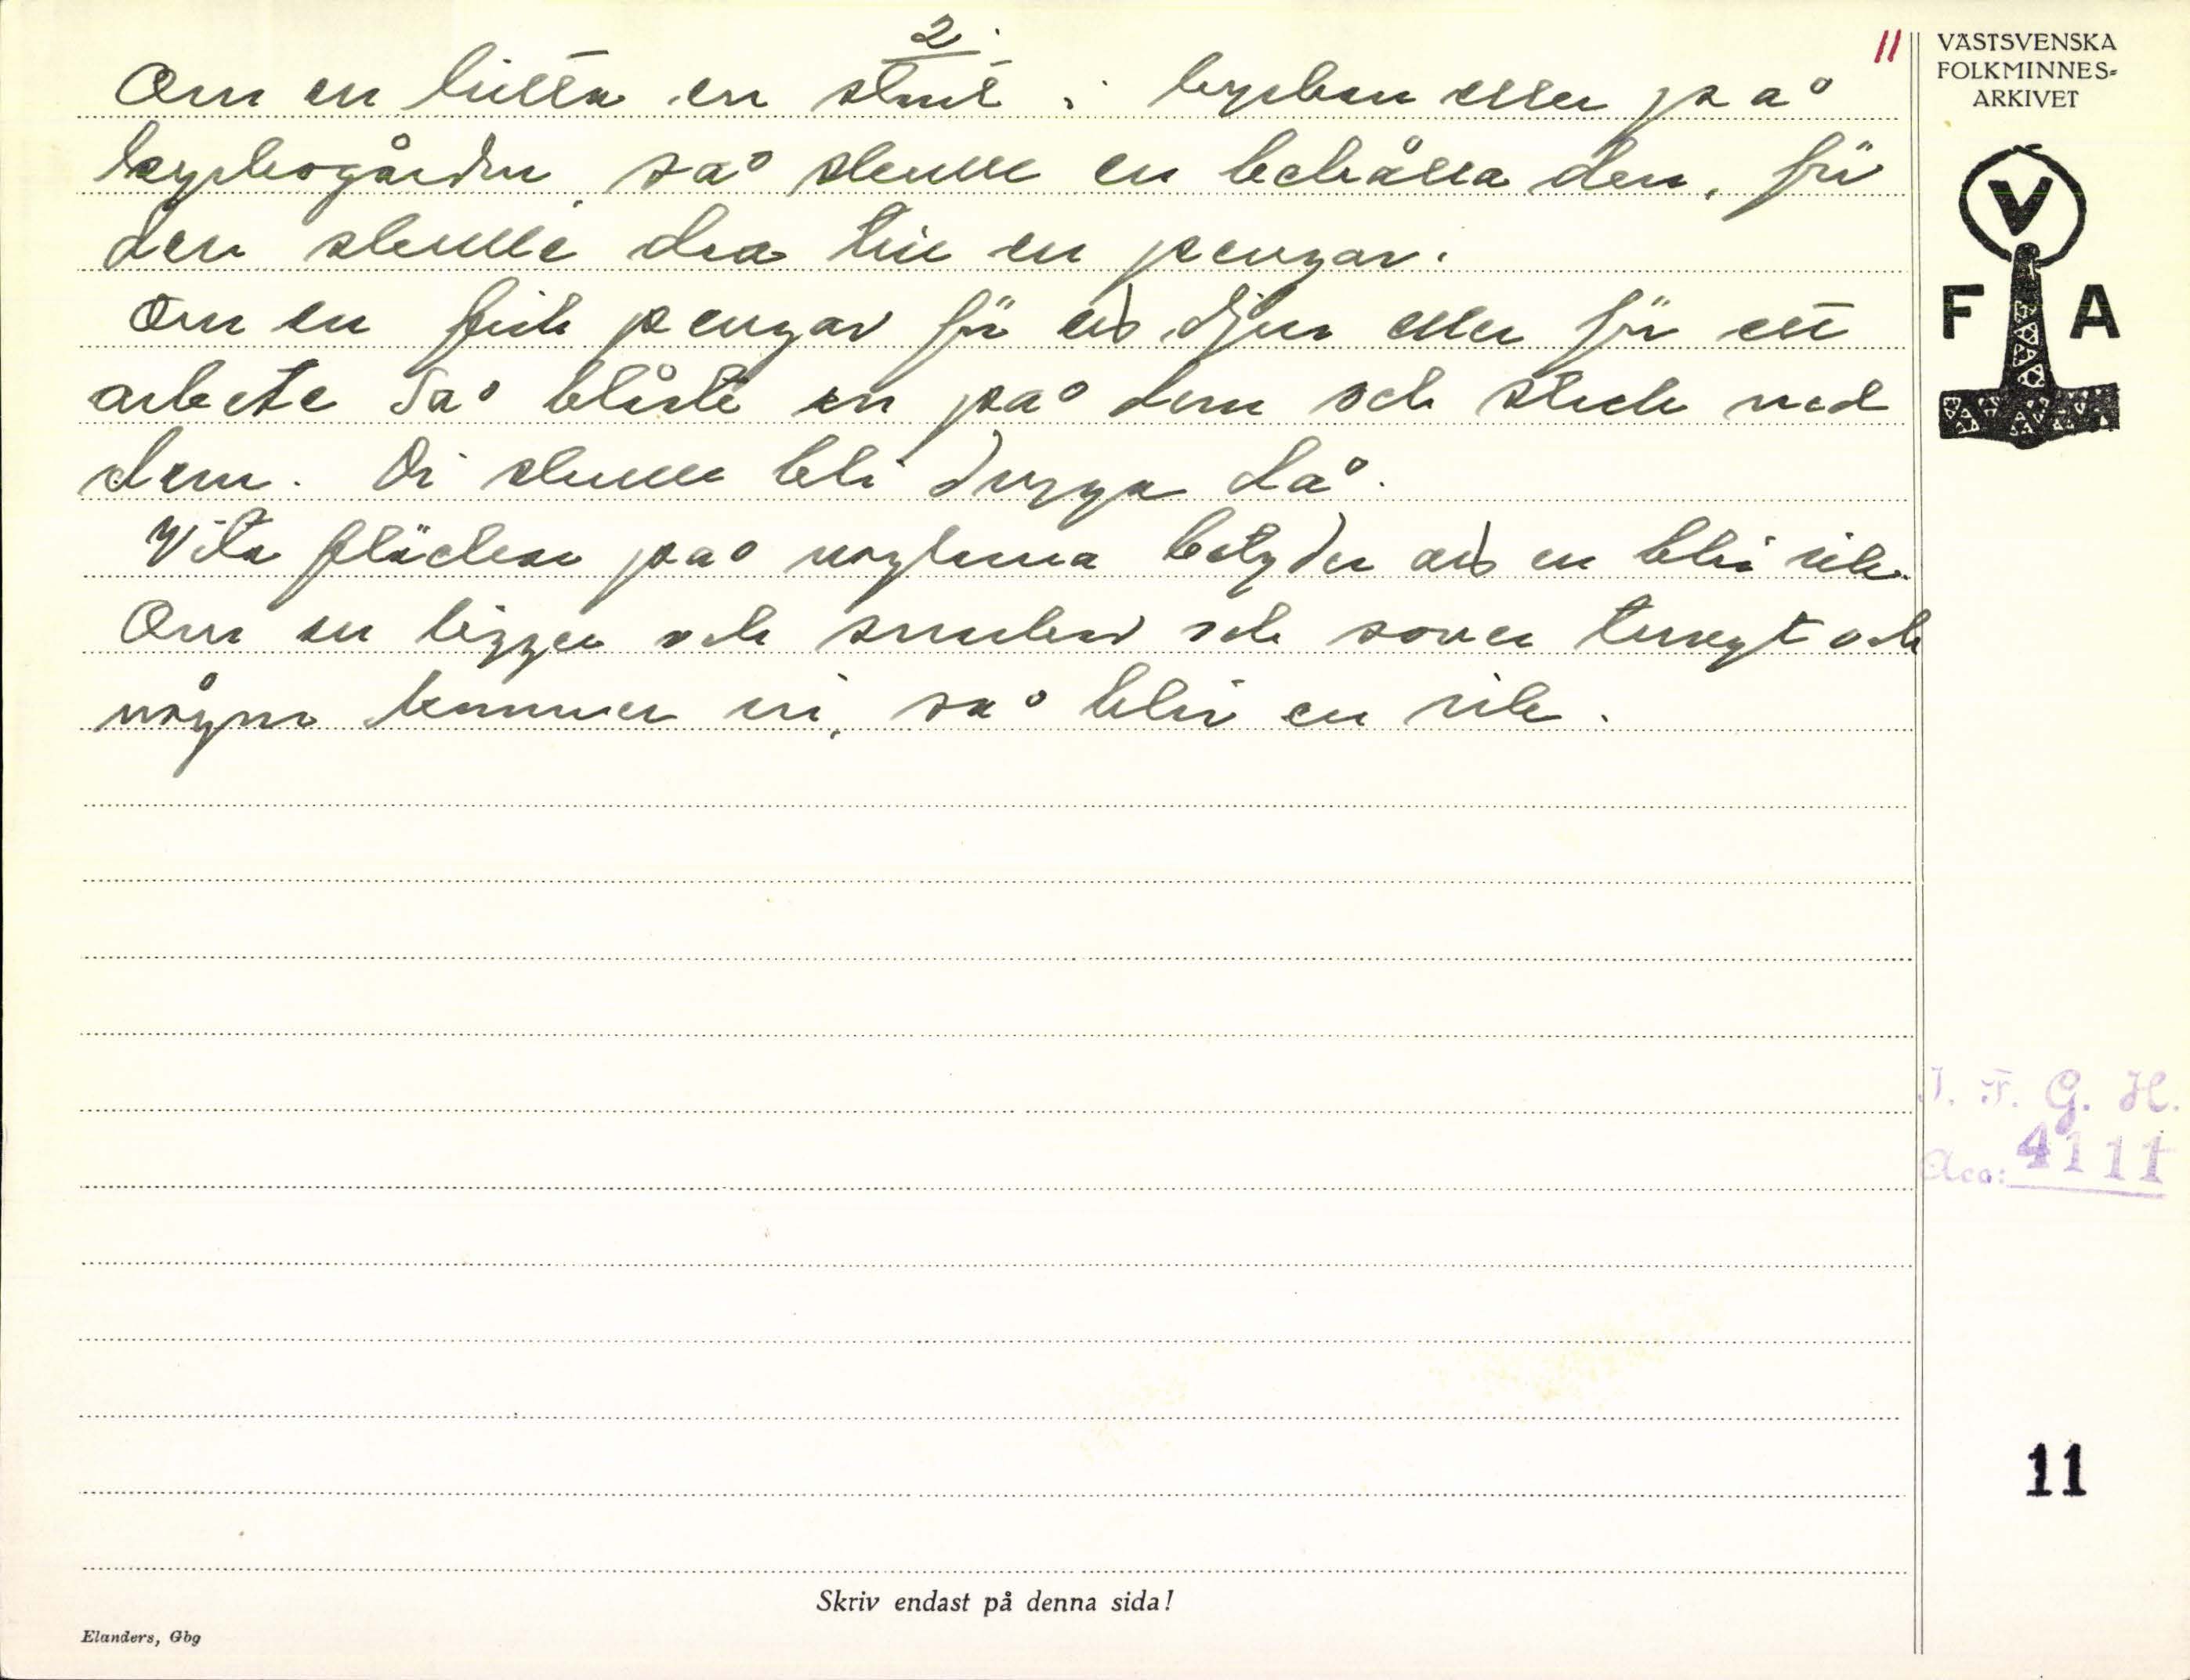 2.
11
VÄSTSVENSKA
FOLKMINNES-
ARKIVET
Om en hitta en slant i kyrkan eller på
kyrkogården, så skulle en behålla den, för
den skulle dra till en pengar.
Om en fick pengar för ett djur eller för ett
arbete så blåste en på dem och stack ned
dem. Di skulle bli dryga då.
Vita fläckar på naglarna betyder att en blir rik.
Om en ligger och snarkar och sover tungt och
någon kommer in, så blir en rik.
V
F A
I. F. G. H.
Acc: 4111
11
Skriv endast på denna sida!
Elanders, Gbg